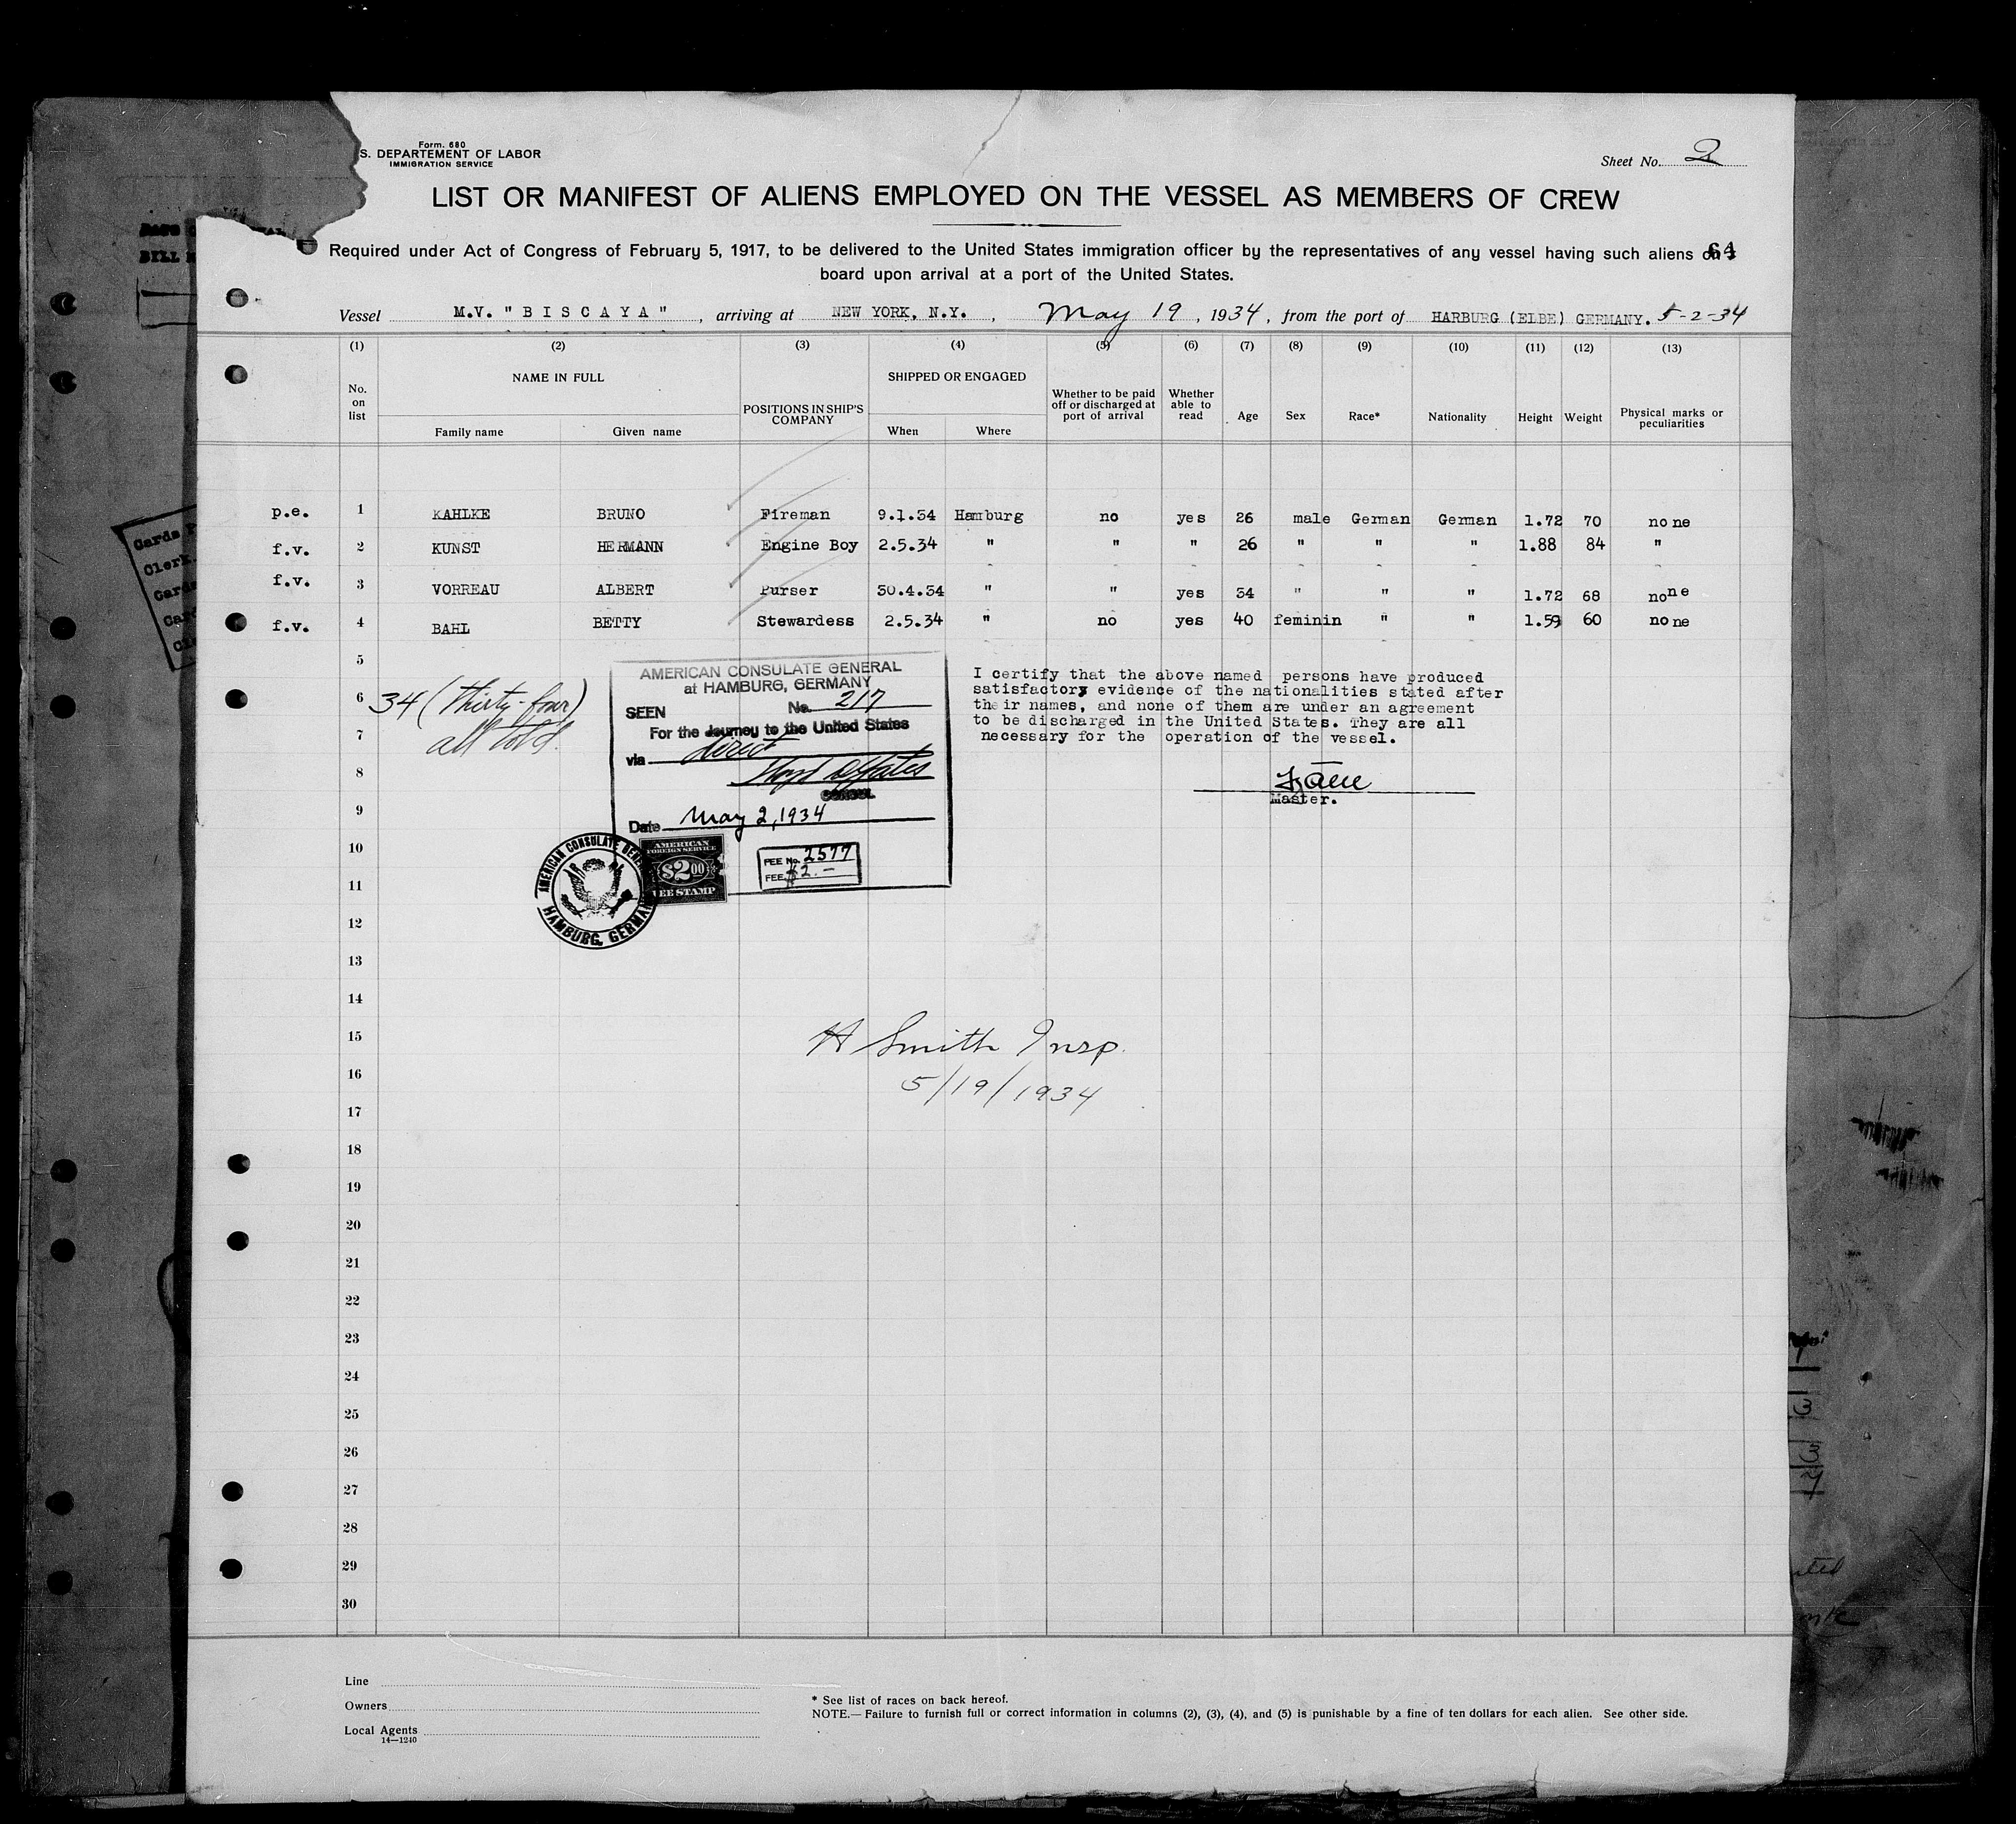 Form. 680
S. DEPARTEMENT OF LABOR
IMMIGRATION SERVICE
Sheet No. 2
LIST OR MANIFEST OF ALIENS EMPLOYED ON THE VESSEL AS MEMBERS OF CREW
Required under Act of Congress of February 5, 1917, to be delivered to the United States immigration officer by the representatives of any vessel having such aliens on
64
board upon arrival at a port of the United States.
Vessel M.V. "BISCAYA", arriving at NEW YORK, N.Y., May 19, 1934, from the port of HARBURG (ELBE) GERMANY. 5-2-34
(1) (2) (3) (4) (5) (6) (7) (8) (9) (10) (11) (12) (13)
No. on list NAME IN FULL Family name Given name POSITIONS IN SHIP'S COMPANY SHIPPED OR ENGAGED When Where Whether to be paid off or discharged at port of arrival Whether able to read Age Sex Race* Nationality Height Weight Physical marks or peculiarities
p.e. 1 KAHLKE BRUNO Fireman 9.1.34 Hamburg no yes 26 male German German 1.72 70 none
f.v. 2 KUNST HERMANN Engine Boy 2.5.34 " " " 26 " " " 1.88 84 "
f.v. 3 VORREAU ALBERT Purser 30.4.34 " " yes 34 " " " 1.72 68 none
f.v. 4 BAHL BETTY Stewardess 2.5.34 " no yes 40 feminin " " 1.59 60 none
5
6
7
8
9
10
11
12
13
14
15
16
17
18
19
20
21
22
23
24
25
26
27
28
29
30
34 (thirty-four)
all told.
AMERICAN CONSULATE GENERAL
at HAMBURG, GERMANY
SEEN No. 217
For the Journey to the United States
via direct
CONSUL
Date May 2, 1934
AMERICAN
FOREIGN SERVICE
$2.00
FEE STAMP
FEE No. 2577
FEE $2.-
AMERICAN CONSULATE GENERAL
HAMBURG, GERMANY
I certify that the above named persons have produced
satisfactory evidence of the nationalities stated after
their names, and none of them are under an agreement
to be discharged in the United States. They are all
necessary for the operation of the vessel.
Master.
H Smith Insp.
5/19/1934
Line
Owners
Local Agents
14—1240
* See list of races on back hereof.
NOTE.— Failure to furnish full or correct information in columns (2), (3), (4), and (5) is punishable by a fine of ten dollars for each alien. See other side.
BILL
Cards
Clerk
Cards